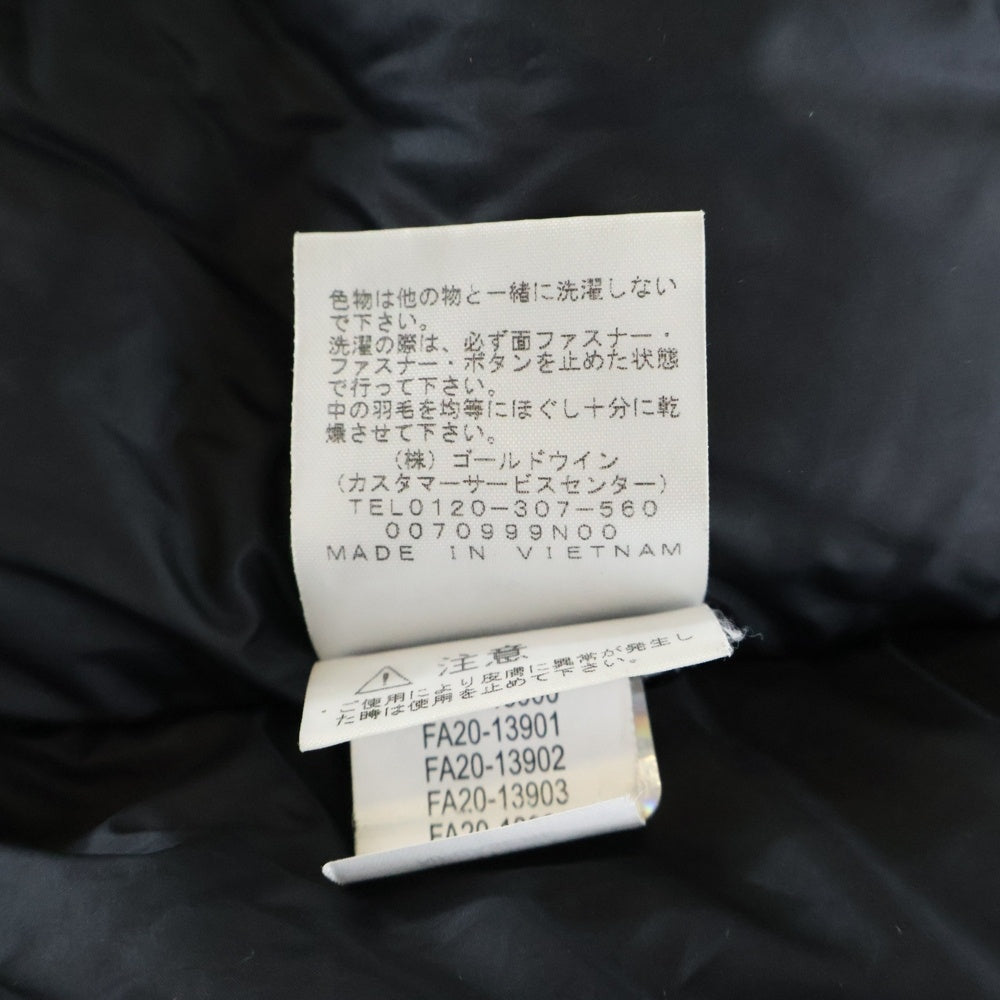 色物は他の物と一緒に洗濯しない
で下さい。
洗濯の際は、必ず面ファスナー・
ファスナー・ボタンを止めた状態
で行って下さい。
中の羽毛を均等にほぐし十分に乾
燥させて下さい。
(株)ゴールドウイン
(カスタマーサービスセンター)
TEL0120-307-560
0070999N00
MADE IN VIETNAM
注意
・ご使用により皮膚に異常が発生し
た時は使用を止めて下さい。
FA20-13901
FA20-13902
FA20-13903